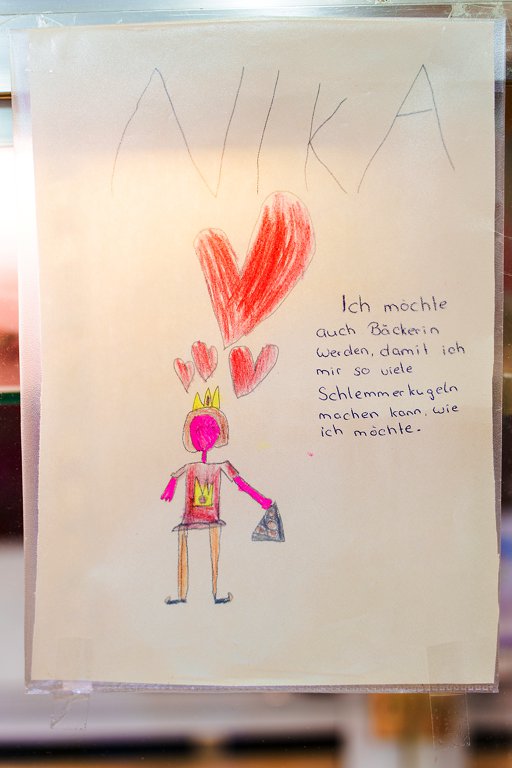 NIKA
Ich möchte
auch Bäckerin
werden, damit ich
mir so viele
Schlemmerkugeln
machen kann, wie
ich möchte.